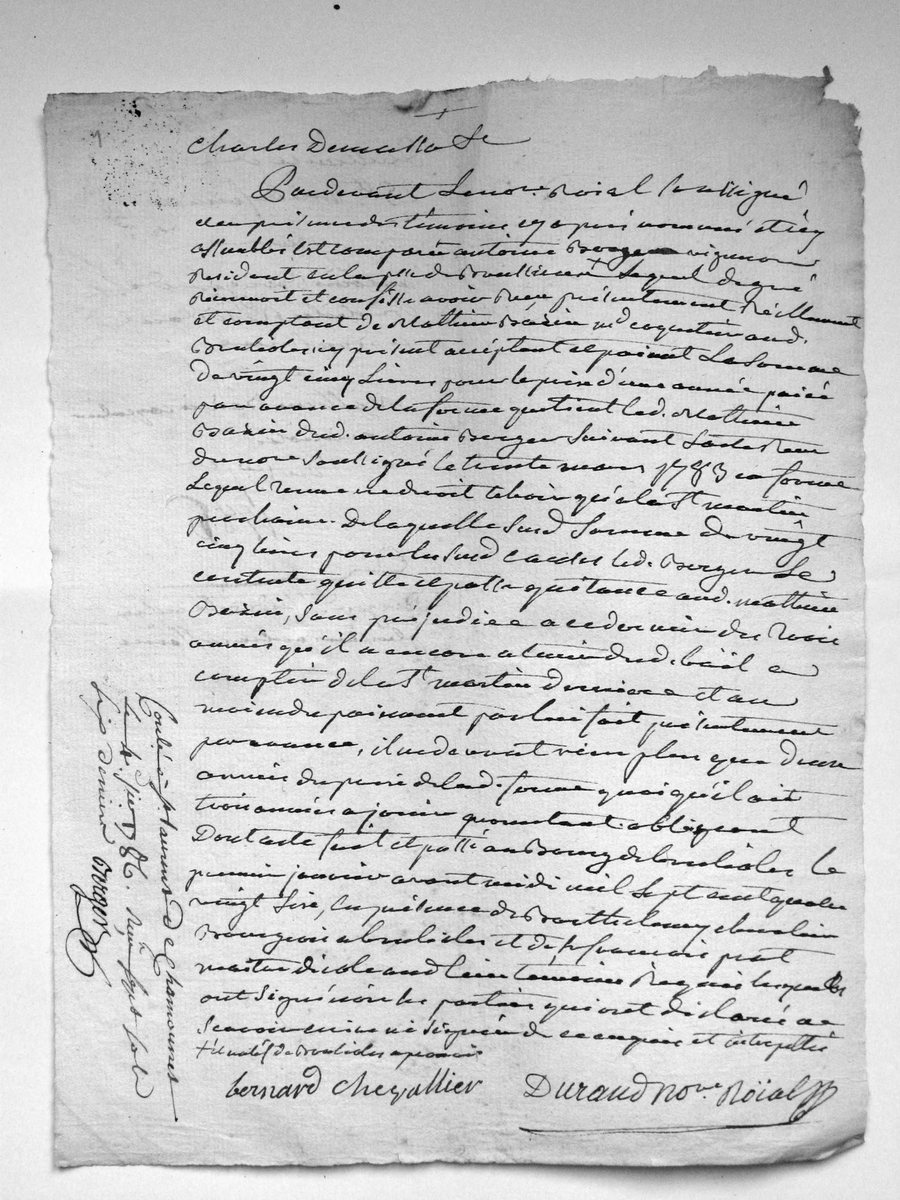 Pardevant Le nore. Roial soussigné
et en présence des témoins cy après nommés et icy
assemblés est comparu antoine Berger vigneron
Resident en la psse de Lequel de gré
Reconnoit et confesse avoir Reçu présentement Réellement
et comptant de Mathieu Bazin md. coquetier aud.
icy présent acceptant et paiant La Somme
De vingt cinq Livres pour le prix d'une année paiée
par avance de la ferme que tient led. Mathieu
Bazin dud. antoine Berger suivant Lacte Reçu
du nore soussigné le trente mars 1783 en forme
Lequel terme ne devoit echoir qu'a la St. martin
prochaine. De laquelle susd. Somme de vingt
cinq livres pour les susd. causes led. Berger Se
contente quitte et passe quitance aud. mathieu
Bazin, sans préjudice a ce dernier des trois
années qu'il a encore a tenir dud. bail a
compter de la St. martin derniere et au
moien du paiement par lui fait présentement
par avance, il ne devra rien plus que deux
années du prix de lad. ferme quoiqu'il ait
trois années a jouir obligeant
Dont acte fait et passé au Bourg de le
premier janvier avant midi mil sept cent quatre
vingt Six, en présence de Barthelemy chevalier
Bourgeois a et de françois
maitre d'ecole aud. lieu témoins Requis lesquels
ont signé non les parties qui ont déclaré ne
Scavoir ecrire ni signer de ce enquis et interpellé
bernard Chevallier Durand Nore. Roïal
Le 4. 1786. Reçu sept sols
Six deniers